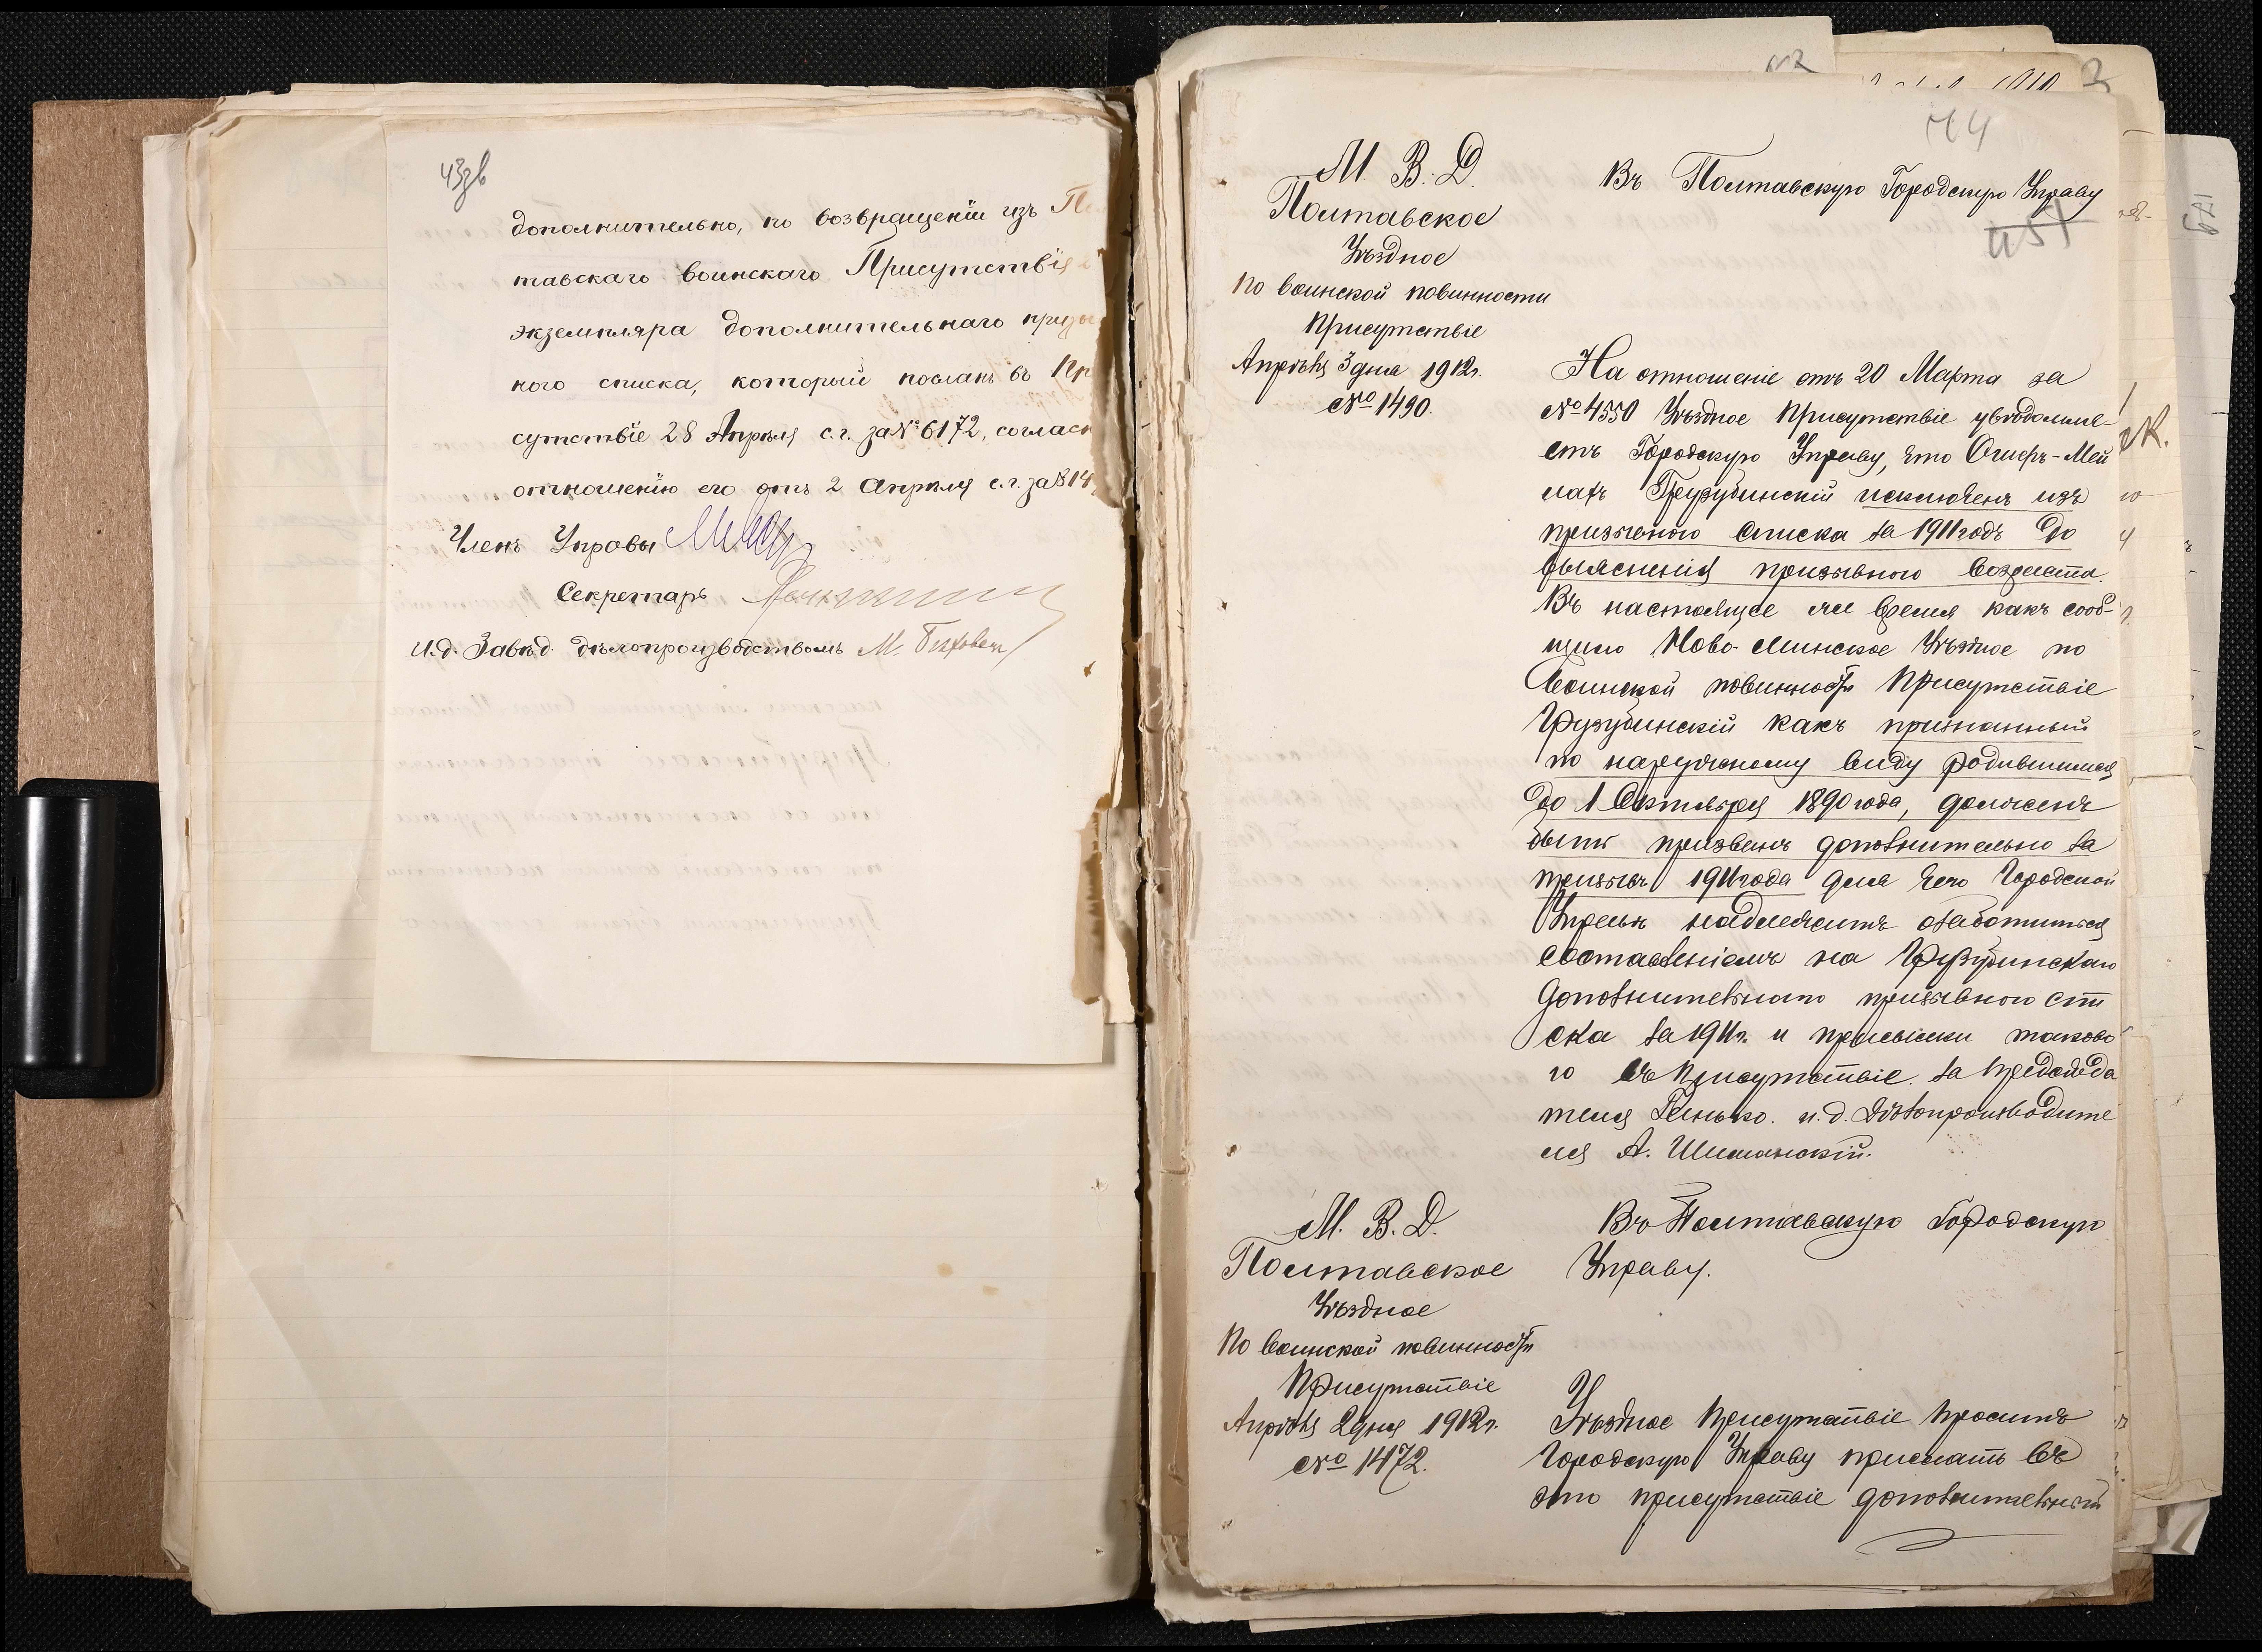 43зв
дополнительно, по возвращеніи изъ По
тавскаго воинскаго Присутствія
экземпляра дополнительнаго призы
ного списка, который посланъ въ Пр
сутствіе 28 Апрѣля с.г. за № 6172, соглас
отношенію его отъ 2 Апрѣля с.г. за № 14
Членъ Управы
Секретарь
И.д. Завѣд. дѣлопроизводствомъ М.
44
М. В. Д.
Полтавское
Уѣздное
по воинской повинности
Присутствіе
Апрѣля 3 дня 1912 г.
№ 1490.
Въ Полтавскую Городскую Управу
451
На отношеніе отъ 20 Марта за
№ 4550 Уѣздное Присутствіе увѣдомля-
етъ Городскую Управу, что Ошеръ-Мей
лахъ Грузубинскій исключенъ изъ
призывного списка за 1911 годъ до
выясненія призывного возраста.
Въ настоящее же время какъ сооб-
щило Ново-Минское Уѣздное по
воинской повинности Присутствіе
Грузубинскій какъ признанный
по наружному виду родившимся
до 1 Октября 1890 года, долженъ
быть призванъ дополнительно за
призывъ 1911 года для чего Городской
Управѣ надлежитъ озаботиться
составленіемъ на Грузубинскаго
дополнительнаго призывного спи
ска за 1911 г. и присылки таково
го въ Присутствіе. За предсѣда
теля Генько. и.д. Дѣлопроизводите
ля А. Шиманскій.
М. В. Д.
Полтавское
Уѣздное
По воинской повинности
Присутствіе
Апрѣля 2 дня 1912 г.
№ 1472.
Въ Полтавскую Городскую
Управу.
Уѣздное Присутствіе проситъ
Городскую Управу прислать въ
это присутствіе дополнительный